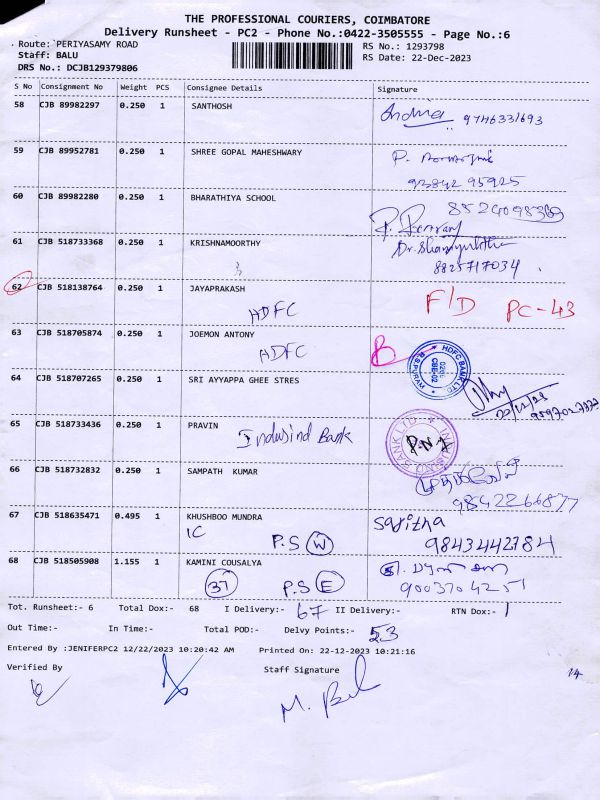 THE PROFESSIONAL COURIERS, COIMBATORE
Delivery Runsheet - PC2 - Phone No.:0422-3505555 - Page No.:6
Route: PERIYASAMY ROAD RS No.: 1293798
Staff: BALU RS Date: 22-Dec-2023
DRS No.: DCJB129379806
S No Consignment No Weight PCS Consignee Details Signature
58 CJB 89982297 0.250 1 SANTHOSH 9746331693
59 CJB 89952781 0.250 1 SHREE GOPAL MAHESHWARY
93842 95925
60 CJB 89982280 0.250 1 BHARATHIYA SCHOOL
61 CJB 518733368 0.250 1 KRISHNAMOORTHY
8825717034
62 CJB 518138764 0.250 1 JAYAPRAKASH F/D PC-43
HDFC
63 CJB 518705874 0.250 1 JOEMON ANTONY B HDFC BANK LTD
HDFC
64 CJB 518707265 0.250 1 SRI AYYAPPA GHEE STRES
22/12/23
65 CJB 518733436 0.250 1 PRAVIN
Indusind Bank
66 CJB 518732832 0.250 1 SAMPATH KUMAR
9842266877
67 CJB 518635471 0.495 1 KHUSHBOO MUNDRA Saritha
IC P.S W 9843442784
68 CJB 518505908 1.155 1 KAMINI COUSALYA
37 P.S E 9003704251
Tot. Runsheet:- 6 Total Dox:- 68 I Delivery:- 67 II Delivery:- RTN Dox:- 1
Out Time:- In Time:- Total POD:- Delvy Points:- 53
Entered By :JENIFERPC2 12/22/2023 10:20:42 AM Printed On: 22-12-2023 10:21:16
Verified By Staff Signature